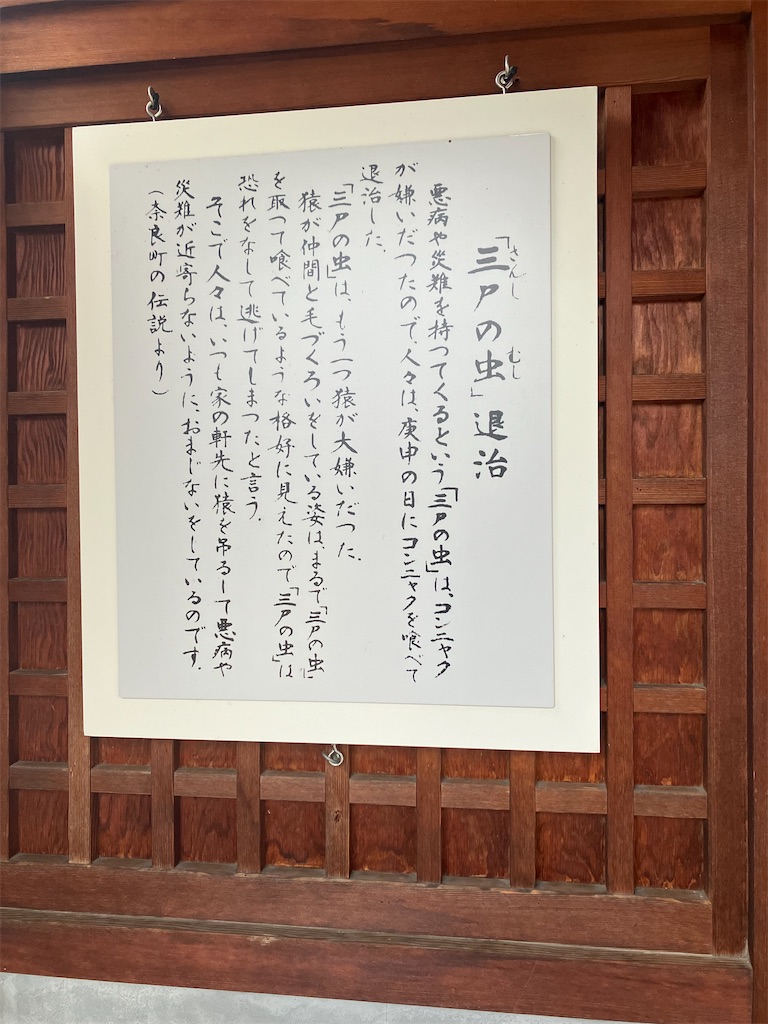 さんし むし
「三尸の虫」退治
悪病や災難を持つてくるという「三尸の虫」は、コンニャク
が嫌いだつたので、人々は、庚申の日にコンニャクを喰べて
退治した。
「三尸の虫」は、もう一つ猿が大嫌いだつた。
猿が仲間と毛づくろいをしている姿は、まるで「三尸の虫」
を取つて喰べているような格好に見えたので「三尸の虫」は
恐れをなして逃げてしまつたと言う。
そこで人々は、いつも家の軒先に猿を吊るして悪病や
災難が近寄らないように、おまじないをしているのです。
(奈良町の伝説より)